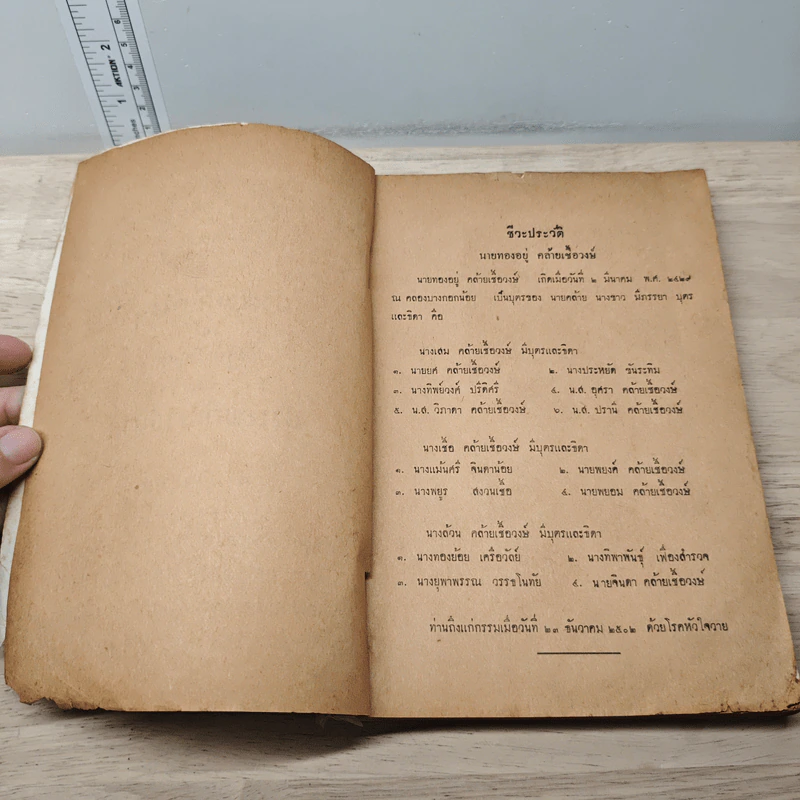 AKTION
1 2
inches
ชีวะประวัติ
นายทองอยู่ คล้ายเชื้อวงษ์
นายทองอยู่ คล้ายเชื้อวงษ์ เกิดเมื่อวันที่ ๒ มีนาคม พ.ศ. ๒๔๒๙
ณ คลองบางกอกน้อย เป็นบุตรของ นายคล้าย นางขาว มีภรรยา บุตร
และธิดา คือ
นางเสม คล้ายเชื้อวงษ์ มีบุตรและธิดา
๑. นายยศ คล้ายเชื้อวงษ์ ๒. นางประหยัด ชันระทิม
๓. นางทิพย์วงศ์ ปรีดิศรี ๔. น.ส. อุศรา คล้ายเชื้อวงษ์
๕. น.ส. วิภาดา คล้ายเชื้อวงษ์ ๖. น.ส. ปรานี คล้ายเชื้อวงษ์
นางเชื้อ คล้ายเชื้อวงษ์ มีบุตรและธิดา
๑. นางแม้นศรี จินดาน้อย ๒. นายพยงค์ คล้ายเชื้อวงษ์
๓. นางพยูร สงวนเชื้อ ๔. นายพยอม คล้ายเชื้อวงษ์
นางล้วน คล้ายเชื้อวงษ์ มีบุตรและธิดา
๑. นางทองย้อย เครือวัลย์ ๒. นางทิพาพันธุ์ เฟื่องสำรวจ
๓. นางยุพาพรรณ วรรขโนทัย ๔. นายจินดา คล้ายเชื้อวงษ์
ท่านถึงแก่กรรมเมื่อวันที่ ๒๓ ธันวาคม ๒๕๐๒ ด้วยโรคหัวใจวาย